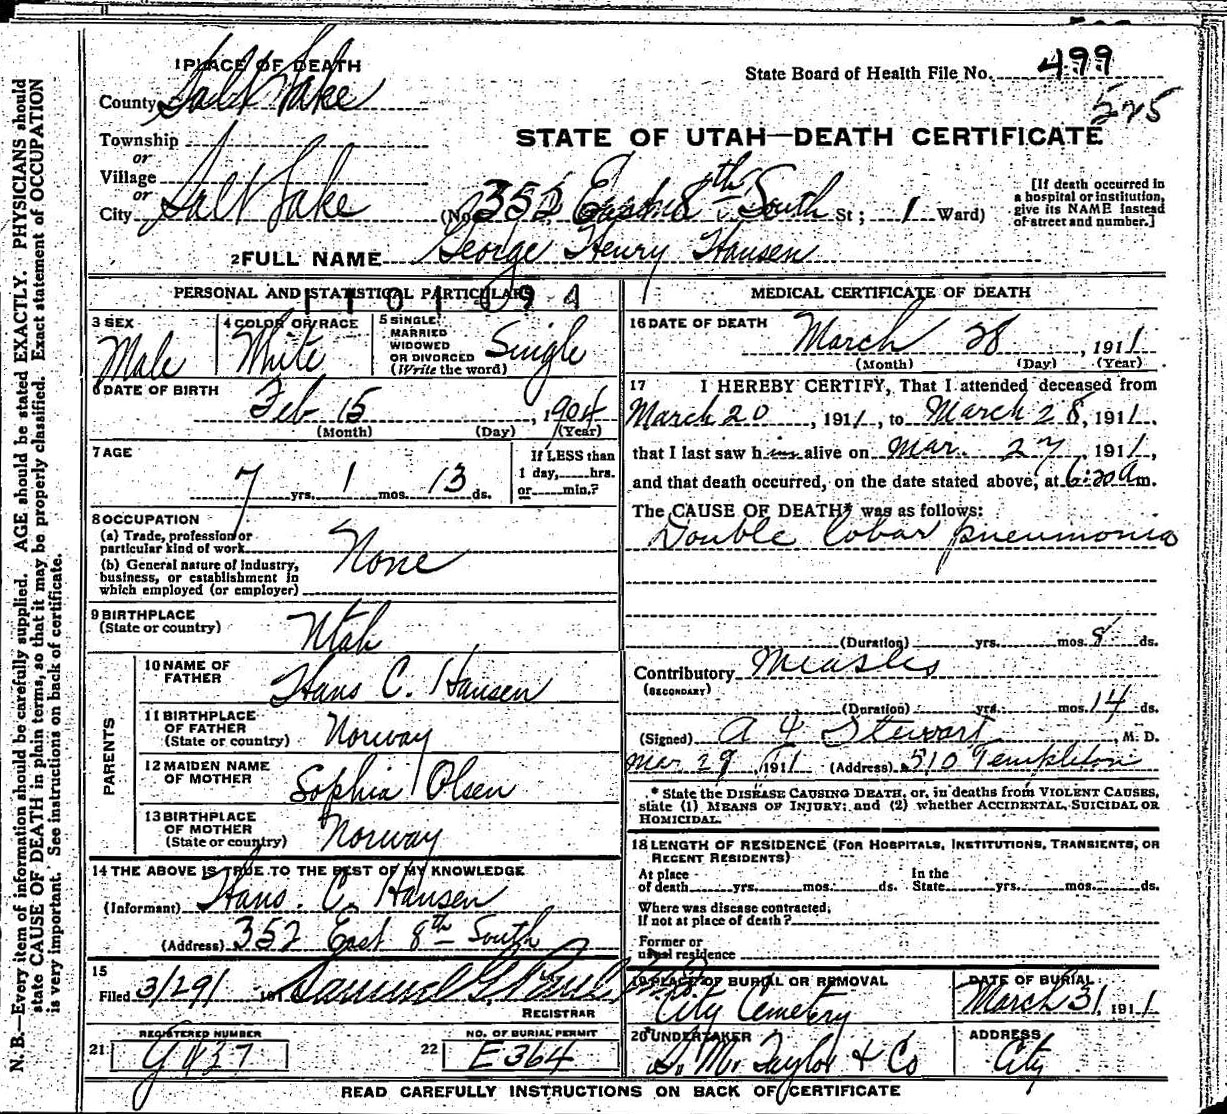 N. B.—Every item of information should be carefully supplied. AGE should be stated EXACTLY. PHYSICIANS should
state CAUSE OF DEATH in plain terms, so that it may be properly classified. Exact statement of OCCUPATION
is very important. See instructions on back of certificate.
1 PLACE OF DEATH
State Board of Health File No. 499
525
County Salt Lake
STATE OF UTAH—DEATH CERTIFICATE
Township
or
Village
or
City Salt Lake
(No. 352 East 8th South St; 1 Ward)
[If death occurred in
a hospital or institution,
give its NAME instead
of street and number.]
2 FULL NAME George Henry Hansen
PERSONAL AND STATISTICAL PARTICULARS
3 SEX
Male
4 COLOR OR RACE
White
5 SINGLE
MARRIED
WIDOWED
OR DIVORCED
(Write the word)
Single
6 DATE OF BIRTH
Feb 15, 1904
(Month) (Day) (Year)
7 AGE
7 yrs. 1 mos. 13 ds.
If LESS than
1 day, hrs.
or min.?
8 OCCUPATION
(a) Trade, profession or
particular kind of work
(b) General nature of industry,
business, or establishment in
which employed (or employer)
None
9 BIRTHPLACE
(State or country)
Utah
PARENTS
10 NAME OF
FATHER
Hans C. Hansen
11 BIRTHPLACE
OF FATHER
(State or country)
Norway
12 MAIDEN NAME
OF MOTHER
Sophia Olsen
13 BIRTHPLACE
OF MOTHER
(State or country)
Norway
14 THE ABOVE IS TRUE TO THE BEST OF MY KNOWLEDGE
(Informant) Hans. C. Hansen
(Address) 352 East 8th South
15
Filed 3/29/ 191
Samuel G. Paul
REGISTRAR
REGISTERED NUMBER
21
NO. OF BURIAL PERMIT
22 E364
MEDICAL CERTIFICATE OF DEATH
16 DATE OF DEATH
March 28, 1911
(Month) (Day) (Year)
17 I HEREBY CERTIFY, That I attended deceased from
March 20, 1911, to March 28, 1911,
that I last saw him alive on Mar. 27, 1911,
and that death occurred, on the date stated above, at 6:20 a m.
The CAUSE OF DEATH* was as follows:
Double lobar pneumonia
(Duration) yrs. mos. 8 ds.
Contributory Measles
(SECONDARY)
(Duration) yrs. mos. 14 ds.
(Signed) A Y Stewart, M. D.
Mar 29, 1911 (Address) 510 Templeton
* State the DISEASE CAUSING DEATH, or, in deaths from VIOLENT CAUSES,
state (1) MEANS OF INJURY; and (2) whether ACCIDENTAL, SUICIDAL OR
HOMICIDAL.
18 LENGTH OF RESIDENCE (FOR HOSPITALS, INSTITUTIONS, TRANSIENTS, OR
RECENT RESIDENTS)
At place
of death yrs. mos. ds.
In the
State yrs. mos. ds.
Where was disease contracted,
If not at place of death?
Former or
usual residence
19 PLACE OF BURIAL OR REMOVAL
City Cemetery
DATE OF BURIAL
March 31, 1911
20 UNDERTAKER
S. M. Taylor & Co
ADDRESS
City
READ CAREFULLY INSTRUCTIONS ON BACK OF CERTIFICATE